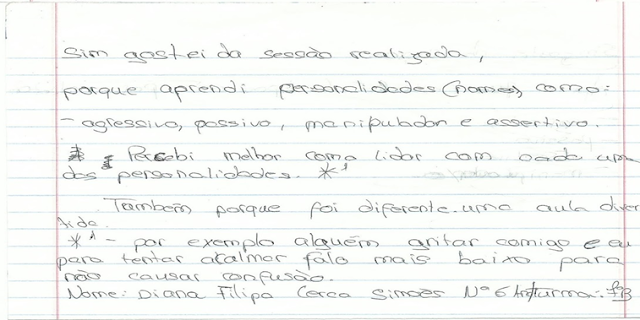 Sim gostei da sessão realizada,
porque aprendi personalidades (nomes) como:
- agressivo, passivo, manipulador e assertivo.
Percebi melhor como lidar com cada uma
das personalidades. *¹
Também porque foi diferente uma aula diver
tida.
*¹ - por exemplo alguém gritar comigo e eu
para tentar acalmar falo mais baixo para
não causar confusão.
Nome: Diana Filipa Cerca Simões Nº 6 turma: